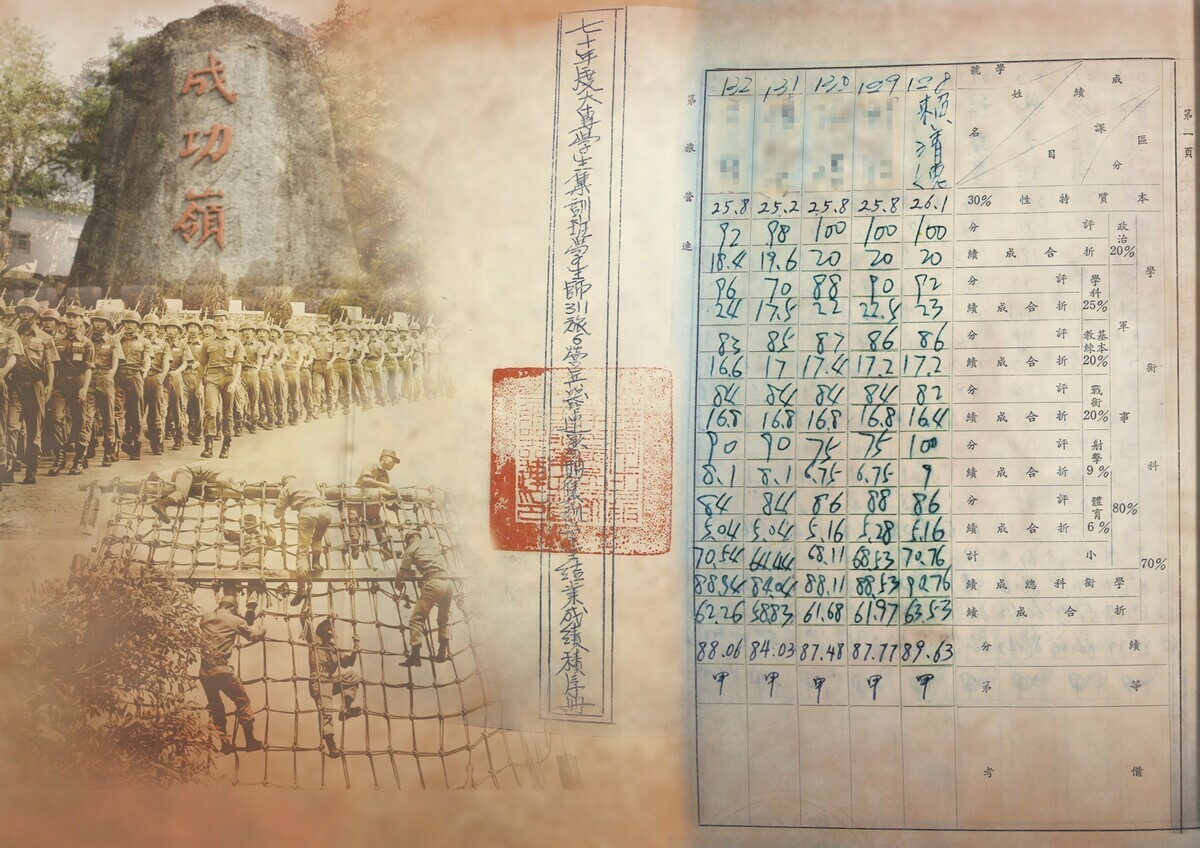 成功嶺
七十年度大專學生集訓班學生師311旅6營兵器連
結業成績積序冊
第一頁
第 旅 營 連
132 131 130 129 128 學號 姓名 成績 課目 區分
賴清德
25.8 25.2 25.8 25.8 26.1 30% 性特質本
92 98 100 100 100 分評 政治20%
18.4 19.6 20 20 20 績成合折
96 70 88 90 92 分評 學科25%
24 17.5 22 22.5 23 績成合折
83 85 87 86 86 分評 基本教練20%
16.6 17 17.4 17.2 17.2 績成合折
84 84 84 84 82 分評 戰術20%
16.8 16.8 16.8 16.8 16.4 績成合折
90 90 75 75 100 分評 射擊9%
8.1 8.1 6.75 6.75 9 績成合折
84 84 86 88 86 分評 體育6%
5.04 5.04 5.16 5.28 5.16 績成合折
70.54 64.44 68.11 68.53 70.76 計小
軍事80%
88.94 84.04 88.11 88.53 90.76 績成總科術學
62.26 58.83 61.68 61.97 63.53 績成合折
學術科70%
88.06 84.03 87.48 87.77 89.63 分績
甲 甲 甲 甲 甲 第等
考備